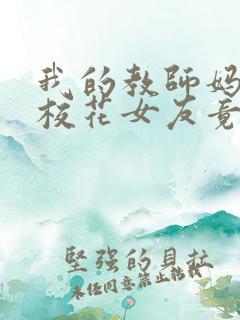 我的教師妈
校花女友竟
堅强的貝拉
未任同意禁止轉載